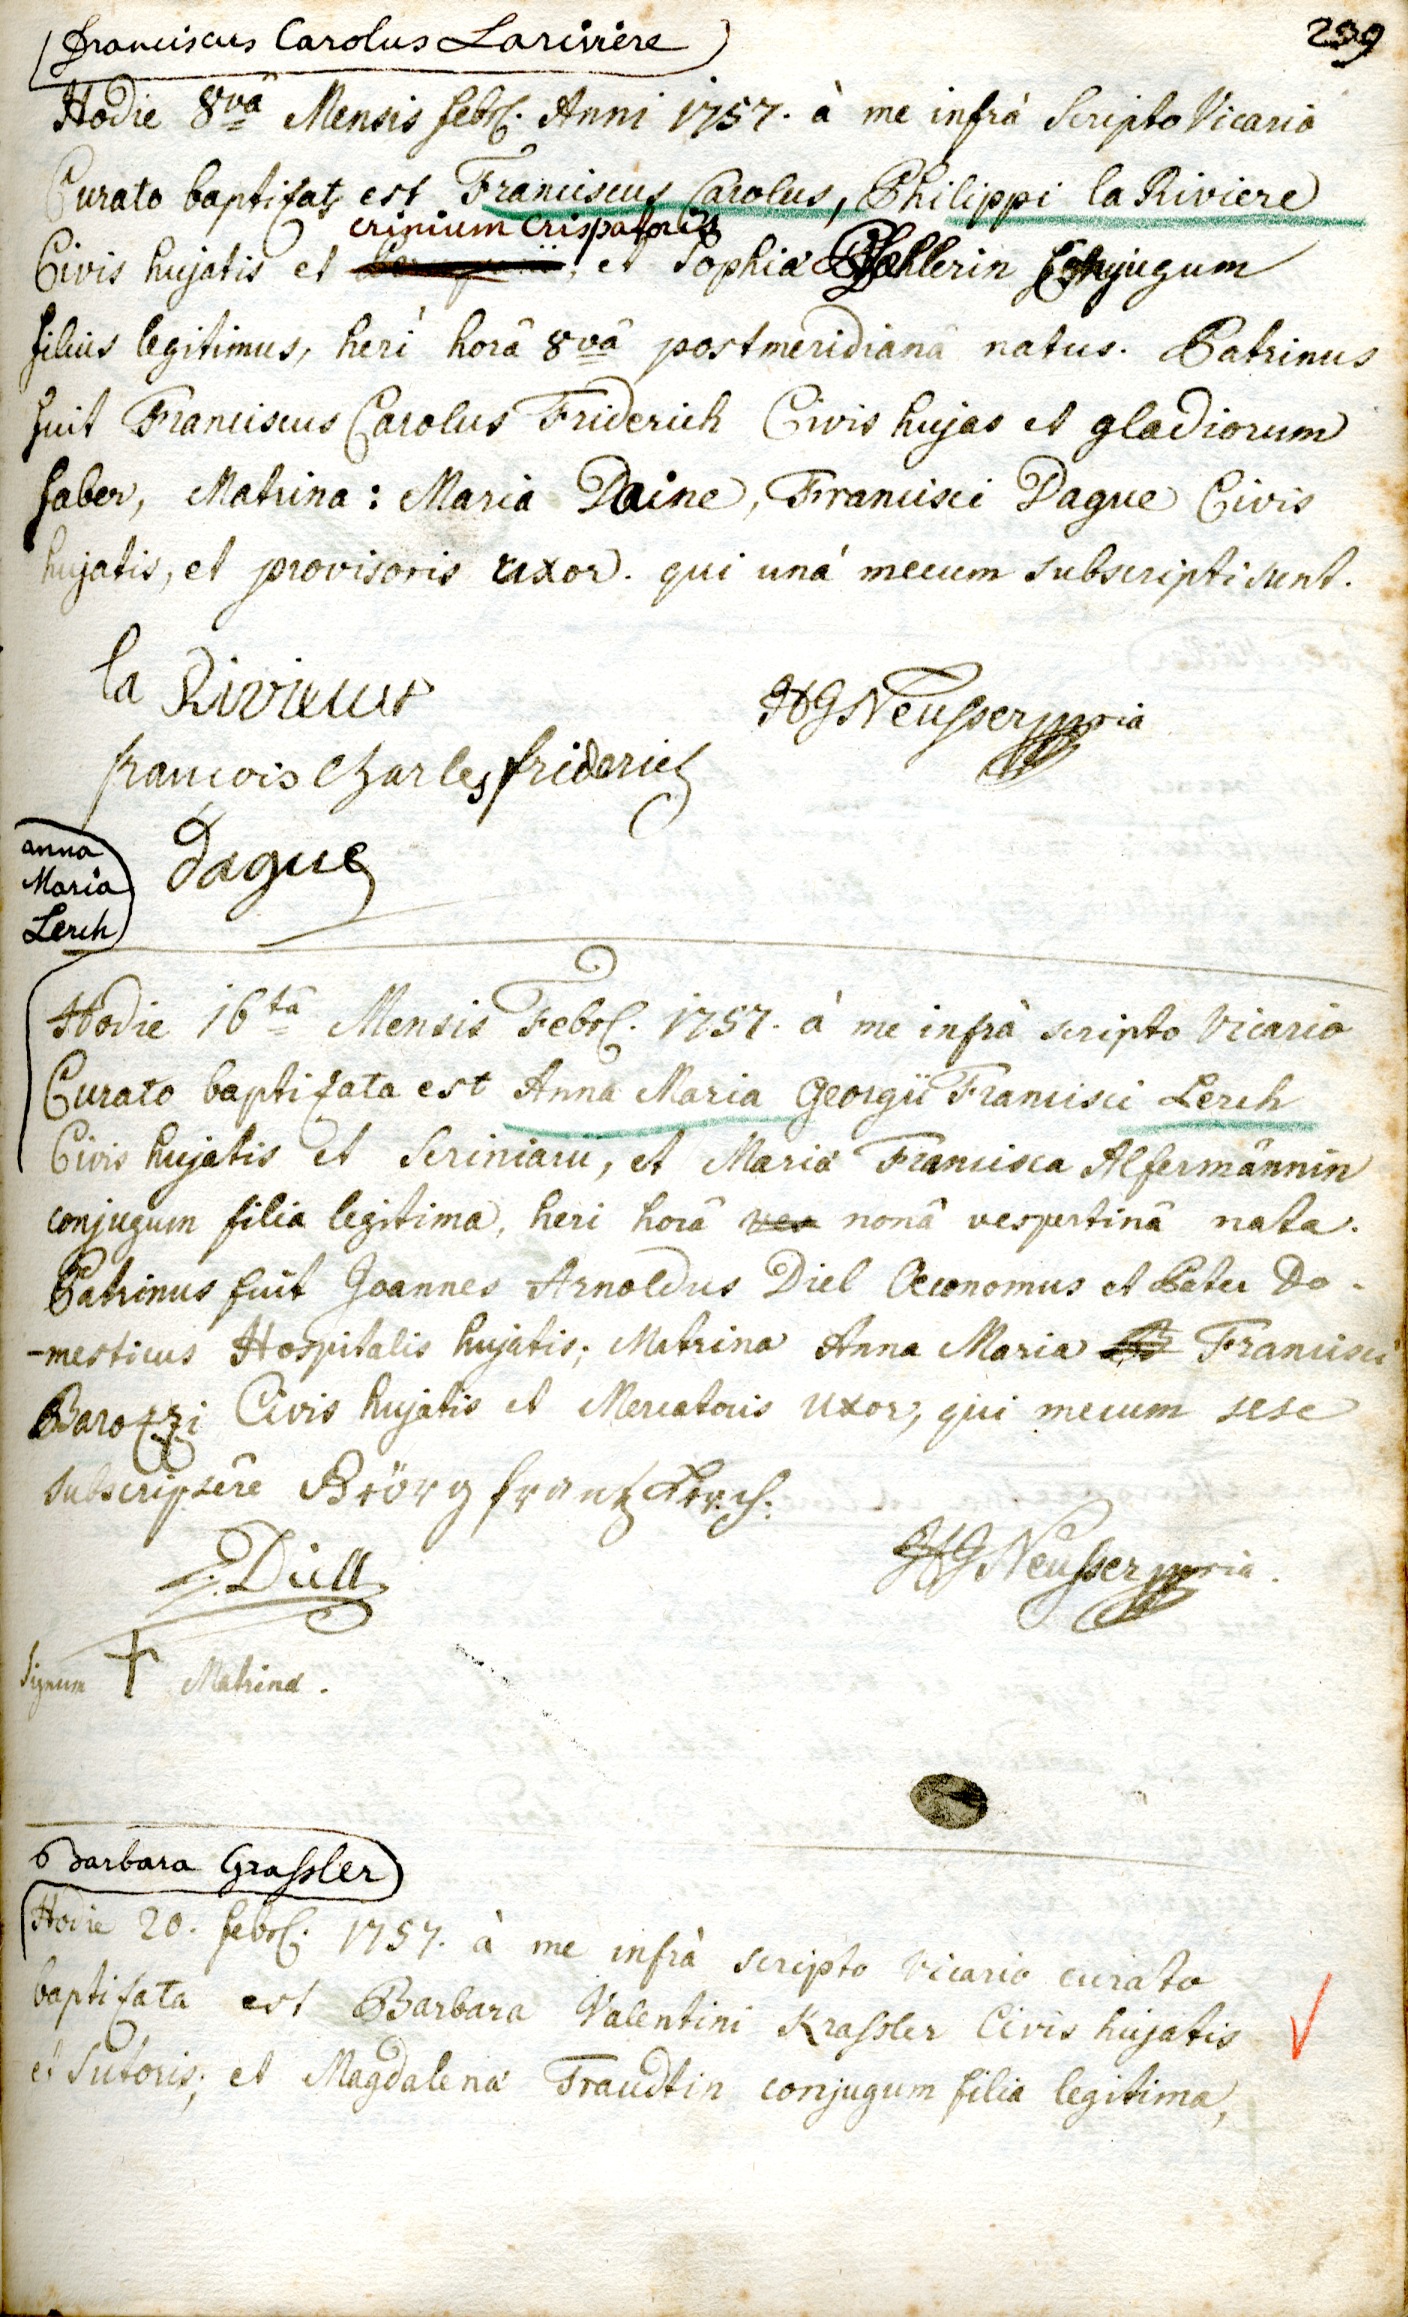 Franciscus Carolus Lariviere
239
Hodie 8vâ Mensis febr. Anni 1757. à me infrà Scripto Vicario
Curato baptizatus est Franciscus Carolus, Philippi la Riviere
crinium Crispatoris
Civis hujatis et et Sophiæ Conjugum
filius legitimus, heri horâ 8vâ postmeridianâ natus. Patrinus
fuit Franciscus Carolus Friderich Civis hujas et gladiorum
faber, Matrina: Maria Daine, Francisci Dague Civis
hujatis, et provisoris uxor. qui unà mecum subscripti sunt.
la Rivieur
HGNeusser mpria
francois Charles friderich
anna
Maria
Lerch
dague
Hodie 16tâ Mensis Febr. 1757. à me infrà scripto Vicario
Curato baptizata est Anna Maria Georgii Francisci Lerch
Civis hujatis et Scriniarii, et Mariæ Francisca Alfermännin
conjugum filia legitima, heri horâ ves nonâ vespertinâ nata.
Patrinus fuit Joannes Arnoldus Diel Oeconomus et Pater Do-
-mesticus Hospitalis hujatis; Matrina Anna Maria Francisci
Barozzi Civis hujatis et Mercatoris Uxor, qui mecum sese
subscripsêre Görg frantz Lerch.
Diell
HGNeusser mpria.
Signum + Matrinæ.
Barbara Grassler
Hodie 20. febr. 1757. à me infrà scripto vicario curato
baptizata est Barbara Valentini Krassler Civis hujatis
et Sutoris; et Magdalenæ Fraudtin conjugum filia legitima,